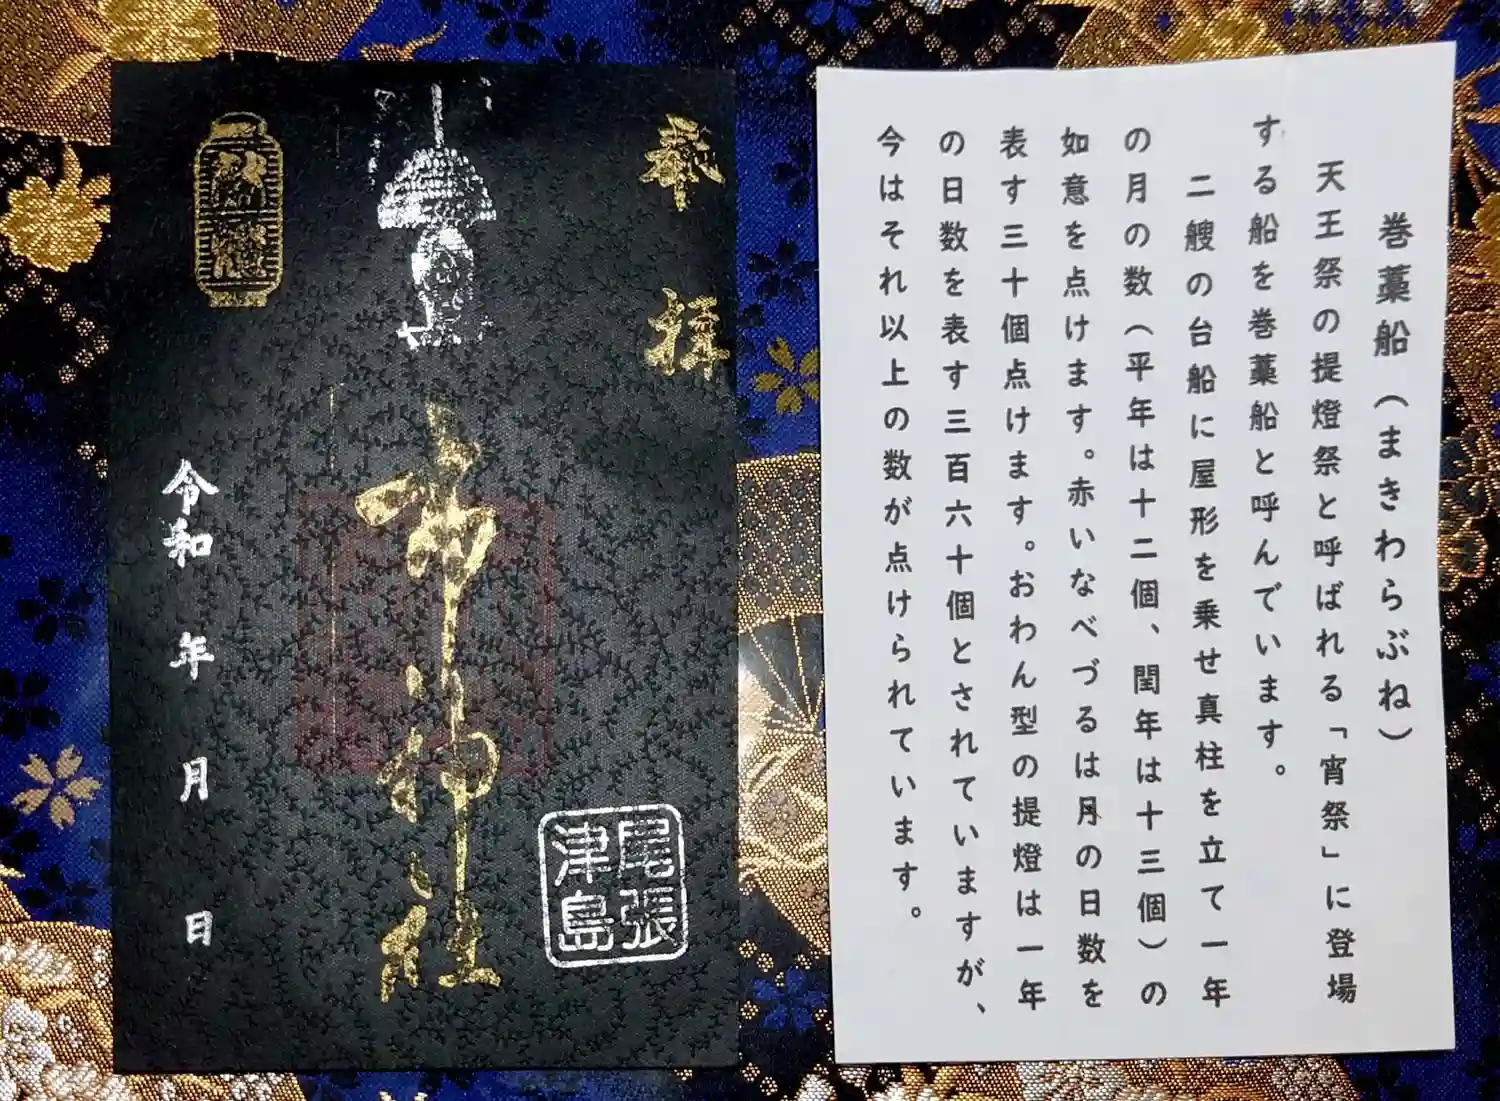 巻藁船（まきわらぶね）
天王祭の提燈祭と呼ばれる「宵祭」に登場
する船を巻藁船と呼んでいます。
二艘の台船に屋形を乗せ真柱を立て一年
の月の数（平年は十二個、閏年は十三個）の
如意を点けます。赤いなべづるは月の日数を
表す三十個点けます。おわん型の提燈は一年
の日数を表す三百六十個とされていますが、
今はそれ以上の数が点けられています。
奉拝
尾張
津島
令和　年　月　日